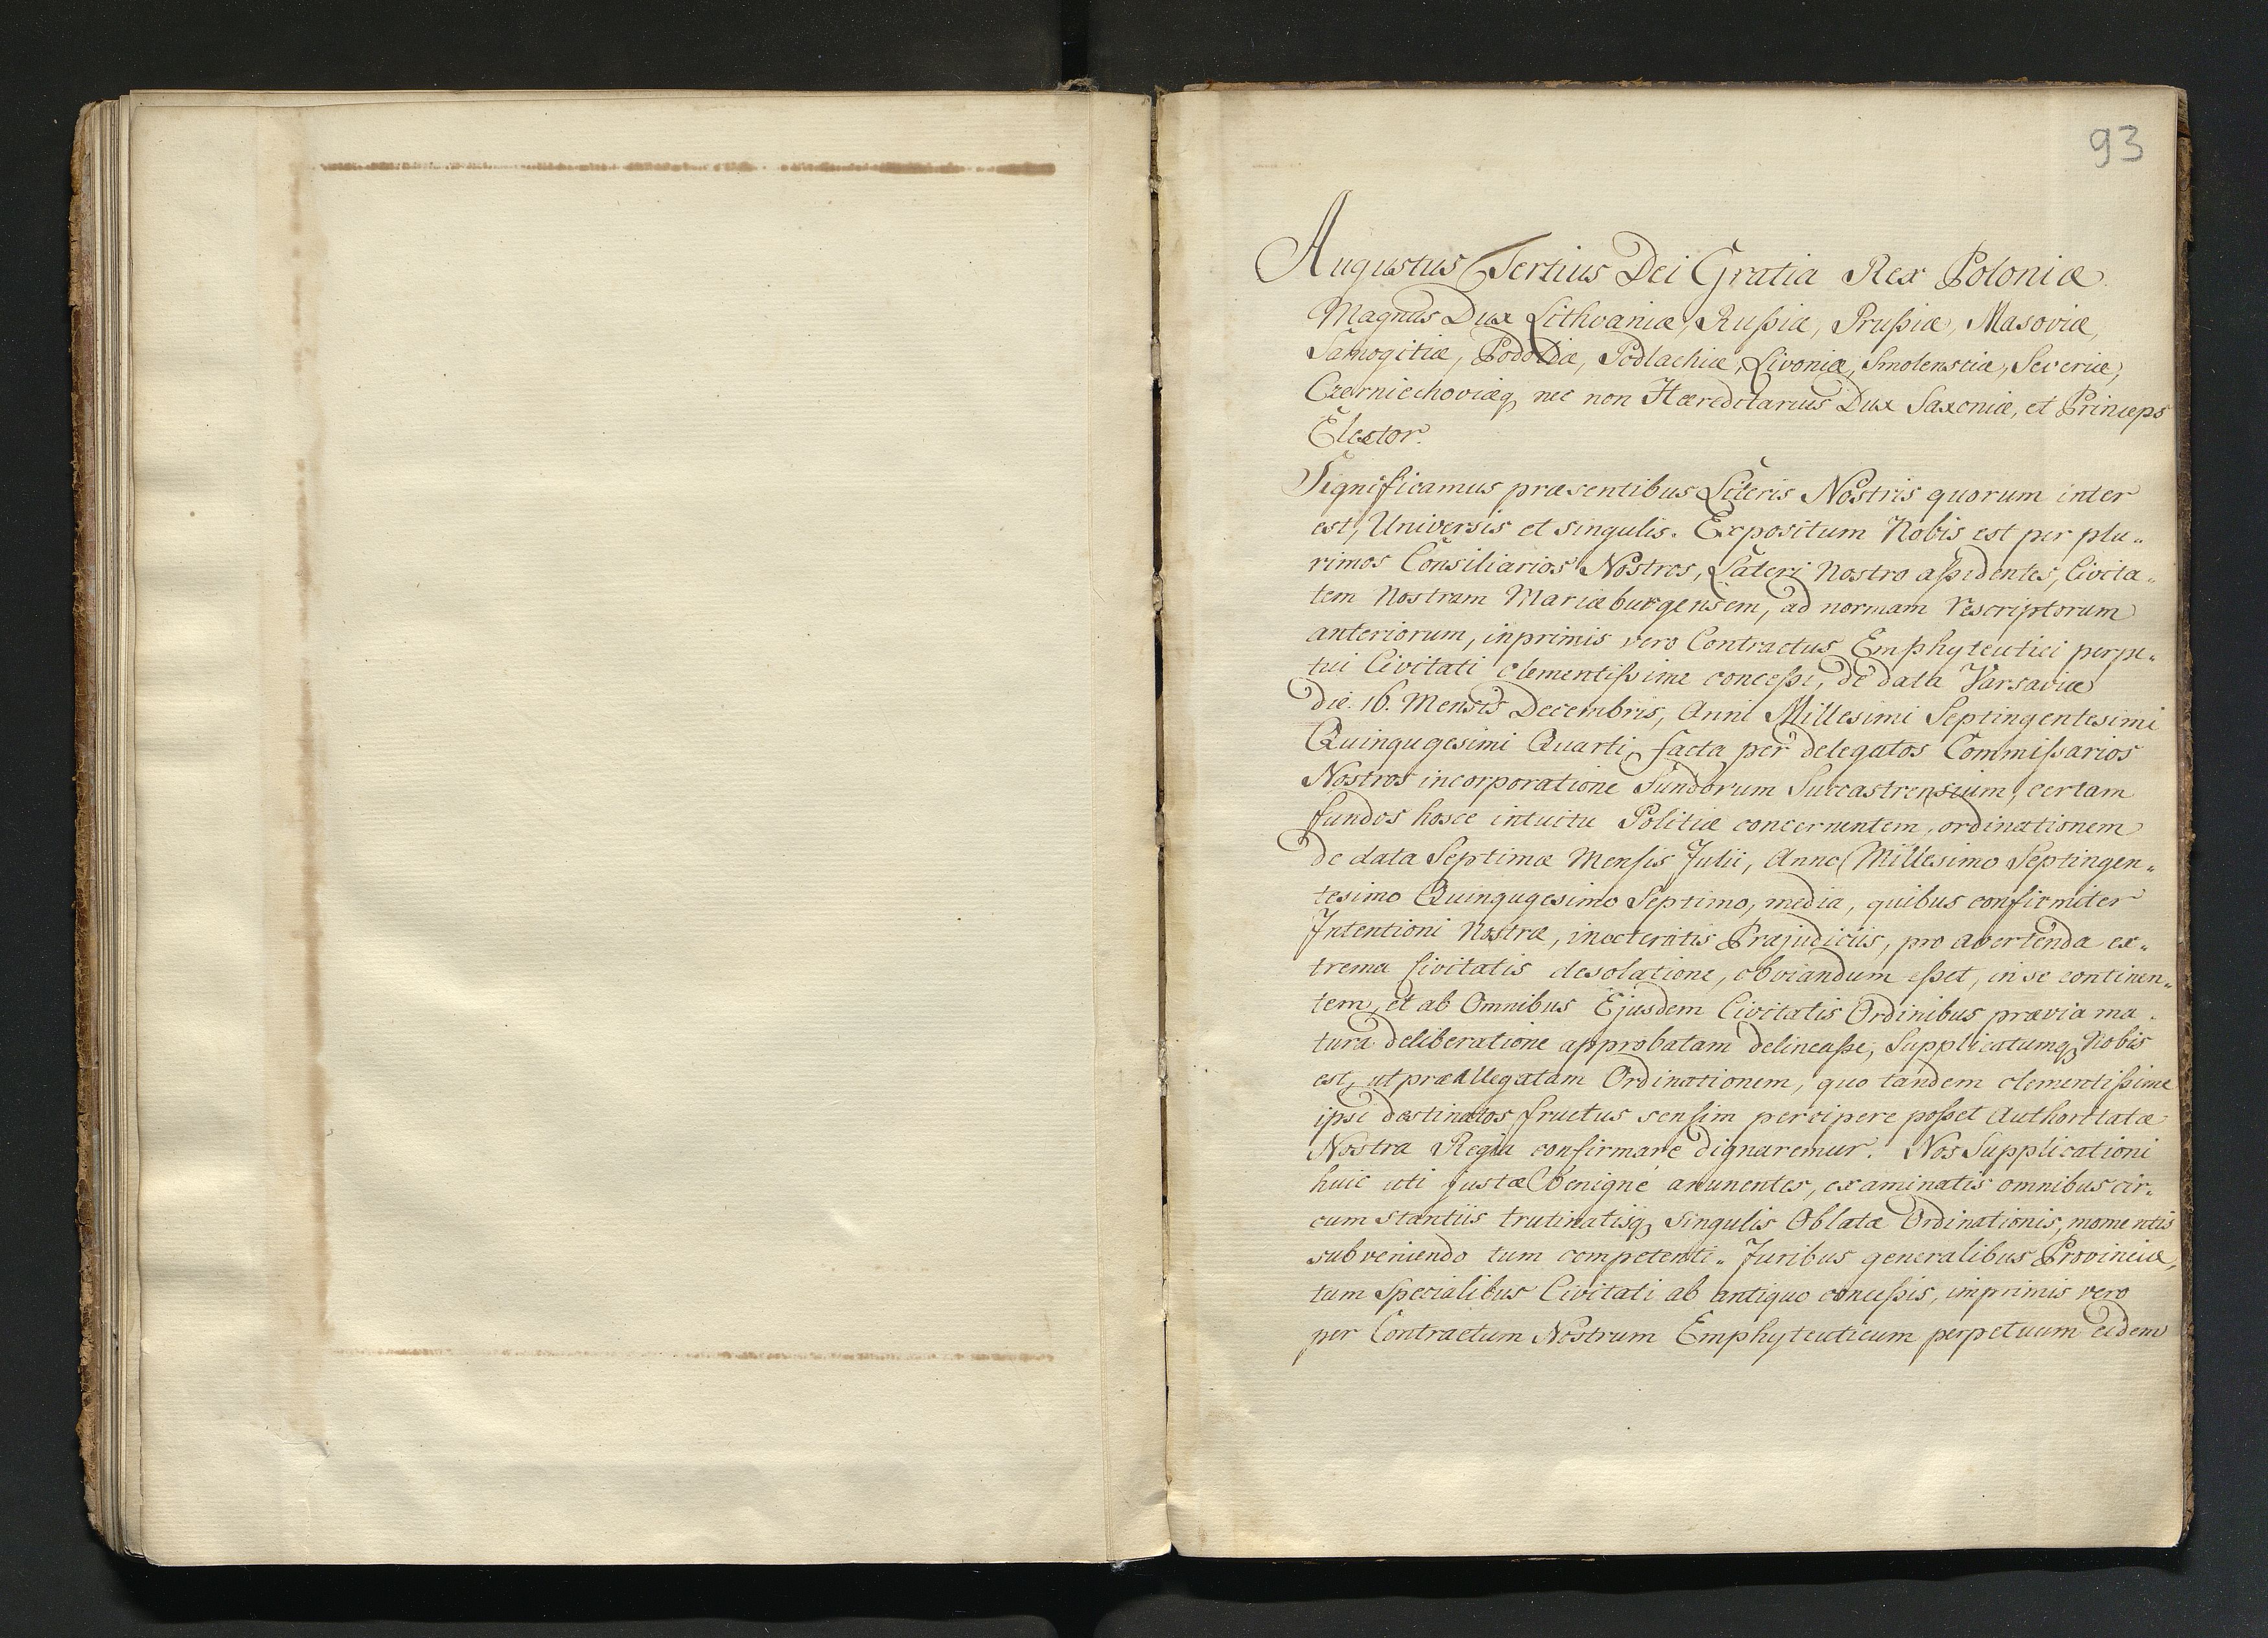 93
Augustus Tertius Dei Gratia Rex Poloniæ.
Magnus Dux Lithvaniæ, Rußiæ, Prußiæ, Masoviæ,
Samogitiæ, Podoliæ, Podlachiæ, Livoniæ, Smolensciæ, Severiæ,
Czerniechoviæq, nec non Hæreditarius Dux Saxoniæ, et Princeps
Elector.
Significamus præsentibus Literis Nostris quorum inter
est, Universis et singulis. Expositum Nobis est per plu„
rimos Consiliarios Nostros, Lateri Nostro aßidentes, Civita„
tem Nostram Mariæburgensem, ad normam rescriptorum
anteriorum, inprimis vero Contractus Emphyteutici perpe„
tui Civitati clementißime conceßi, de data Varsaviæ
die. 16. Mensis Decembris, Anni Millesimi Septingentesimi
Quinqugesimi Quarti, facta per delegatos Commißarios
Nostros incorporatione Fundorum Succastrensium, certam
fundos hosce intuitu Politiæ concernentem, ordinationem
de data Septimæ Mensis Julii, Anno Millesimo Septingen„
tesimo Quinqugesimo Septimo, media, quibus confirmiter
Intentioni Nostræ, inveteratis Præjudiciis, pro avertenda ex„
trema Civitatis desolatione, obviandum eßet, in se continen„
tem, et ab Omnibus Ejusdem Civitatis Ordinibus prævia ma„
tura deliberatione approbatam delineaße, Supplicatumq, Nobis
est, ut præallegatam Ordinationem, quo tandem clementißime
ipsi destinatos fructus sensim percipere poßet Authoritatæ
Nostra Regia confirmare dignaremur. Nos Supplicationi
huic uti justæ benigne anunentes, examinatis omnibus cir„
cum stantiis trutinatisq, singulis Oblatæ Ordinationis, momentis
subveniendo tum competenti„ Juribus generalibus Provinciæ,
tum Specialibus Civitati ab antiquo conceßis, imprimis vero
per Contractum Nostrum Emphyteuticum perpetuum eidem